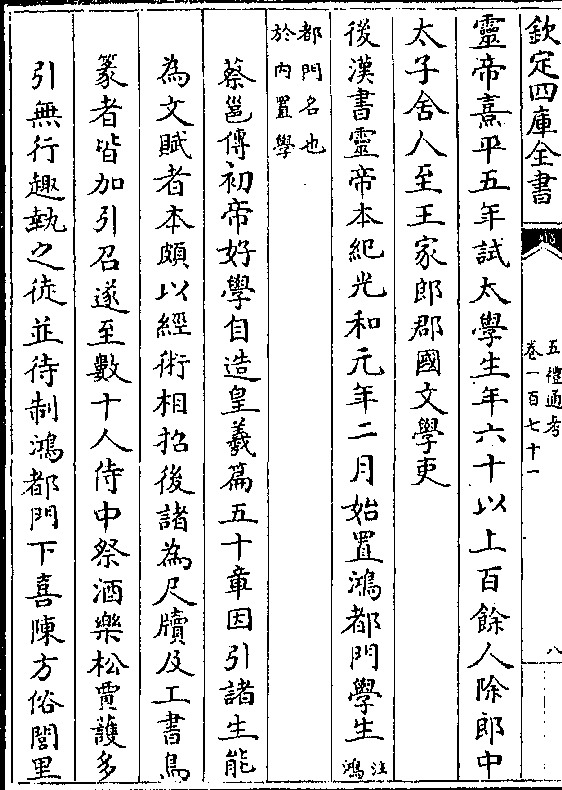 欽定四庫全書
五禮通考
卷一百七十一
八
靈帝熹平五年試太學生年六十以上百餘人除郎中
太子舍人至王家郎郡國文學吏
後漢書靈帝本紀光和元年二月始置鴻都門學生注鴻
都門名也
於内置學
蔡邕傳初帝好學自造皇羲篇五十章因引諸生能
為文賦者本頗以經術相招後諸為尺牘及工書鳥
篆者皆加引召遂至數十人侍中祭酒樂松賈護多
引無行趣埶之徒並待制鴻都門下喜陳方俗閭里